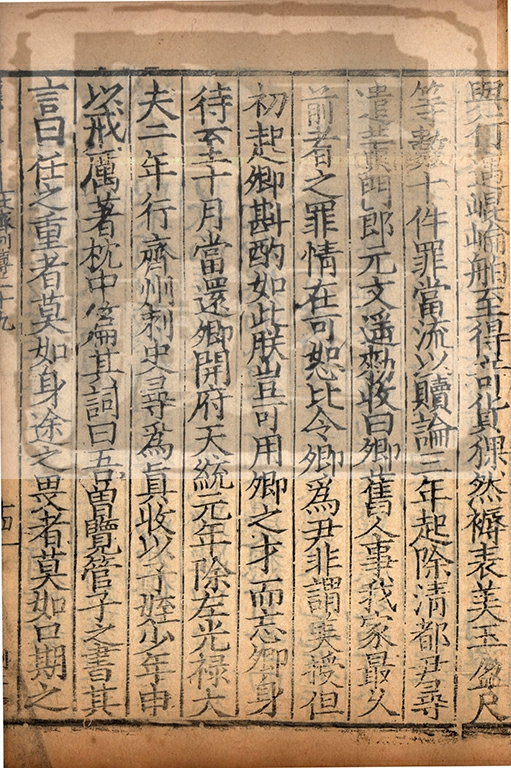 與行遇崐崘舶至得奇貨猓然褥表美玉盈尺
等數十件罪當流以贖論三年起除清都尹尋
遣黃門郎元文遥勑收曰卿舊人事我家最久
前者之罪情在可恕比今卿爲尹非謂美授但
初起卿斟酌如此朕豈可用卿之才而忘卿身
待至十月當還卿開府天統元年除左光禄大
夫二年行齊州刺史尋爲眞收以子姪少年申
以戒厲著枕中篇其詞曰吾曽覽管子之書其
言曰任之重者莫如身途之畏者莫如口期之
傳二十九